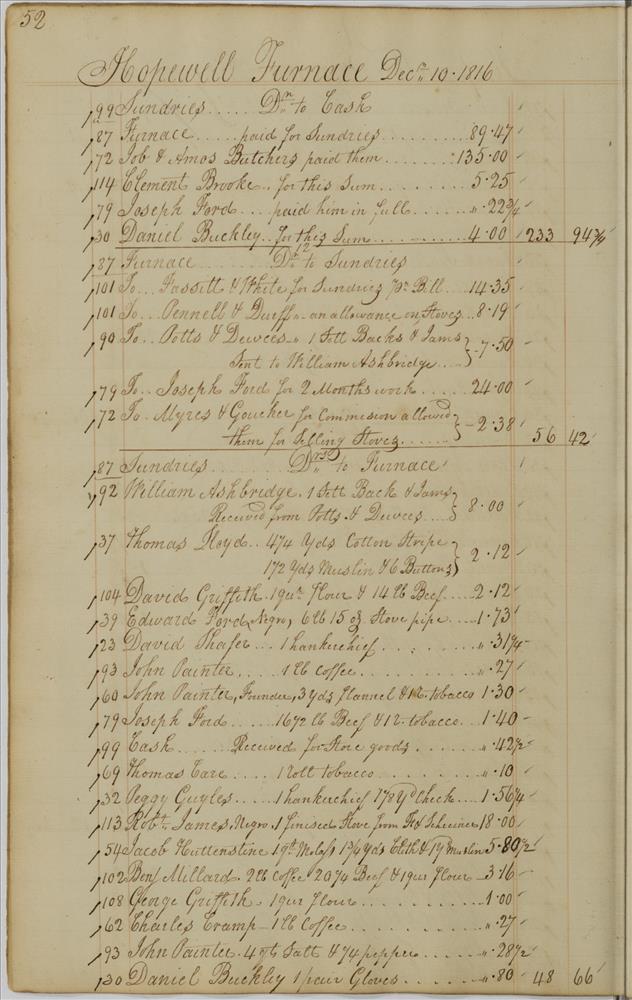 52
Hopewell Furnace Decr 10. 1816
99 Sundries ...... Drs to Cash
87 Furnace ..... paid for Sundries ......... 89.47
72 Job & Amos Butchers paid them ....... 135.00
114 Clement Brooke .. for this Sum ........ 5.25
79 Joseph Ford .... paid him in full ...... ". 22 3/4
30 Daniel Buckley .. for this Sum ......... 4.00 233 94 3/4
87 Furnace ......... Dr to Sundries
101 To ... Fassitt & White for Sundries pr Bill .... 14.35
101 To .. Pennell & Duff - an allowance on Stoves ... 8.19
90 To .. Potts & Dewees " 1 Sett Backs & Jams
Sent to William Ashbridge .... 7.50
79 To .. Joseph Ford for 2 Months work ...... 24.00
72 To . Myres & Goucher for Commision allowed
them for Selling Stoves ...... 2.38 56 42
87 Sundries ......... Drs to Furnace
92 William Ashbridge . 1 Sett Back & Jams
Received from Potts & Dewees .... 8.00
37 Thomas Lloyd .. 4 3/4 Yds Cotton Stripe
1 1/2 Yds Muslin & 6 Buttons 2.12
104 David Griffith . 1 qur flour & 14 lb Beef .... 2.12
39 Edward Ford, Negro, 6 lb 15 oz Stove pipe .... 1.73
23 David Shafer ... 1 hankerchief ........ ". 31 1/4
93 John Painter .... 1 lb Coffee ......... ". 27
60 John Painter, Founder, 3 yds flannel & 12. tobacco 1.30
79 Joseph Ford ..... 16 1/2 lb Beef & 12. tobacco ... 1.40
99 Cash ...... Received for Store goods ....... ". 42 1/2
69 Thomas Care .... 1 roll tobacco .......... ". 10
32 Peggy Guyles .... 1 hankerchief 1 7/8 Yd Check .... 1.56 1/4
113 Robt James, Negro . 1 finised Stove from 18.00
54 Jacob Huttenstine 1 qt Molass 1 3/4 yds Cloth & 1 yd Muslin 5.80 1/2
102 Benj Millard . 2 lb Coffee 20 3/4 Beef & 1 qur flour - 3.16
108 George Griffith . 1 qur flour ........ 1.00
62 Charles Cramp - 1 lb Coffee ......... ". 27
93 John Painter . 4 qts Salt & 1/4 pepper ...... ". 28 1/2
30 Daniel Buckley 1 pair Gloves ........ ". 80 48 66